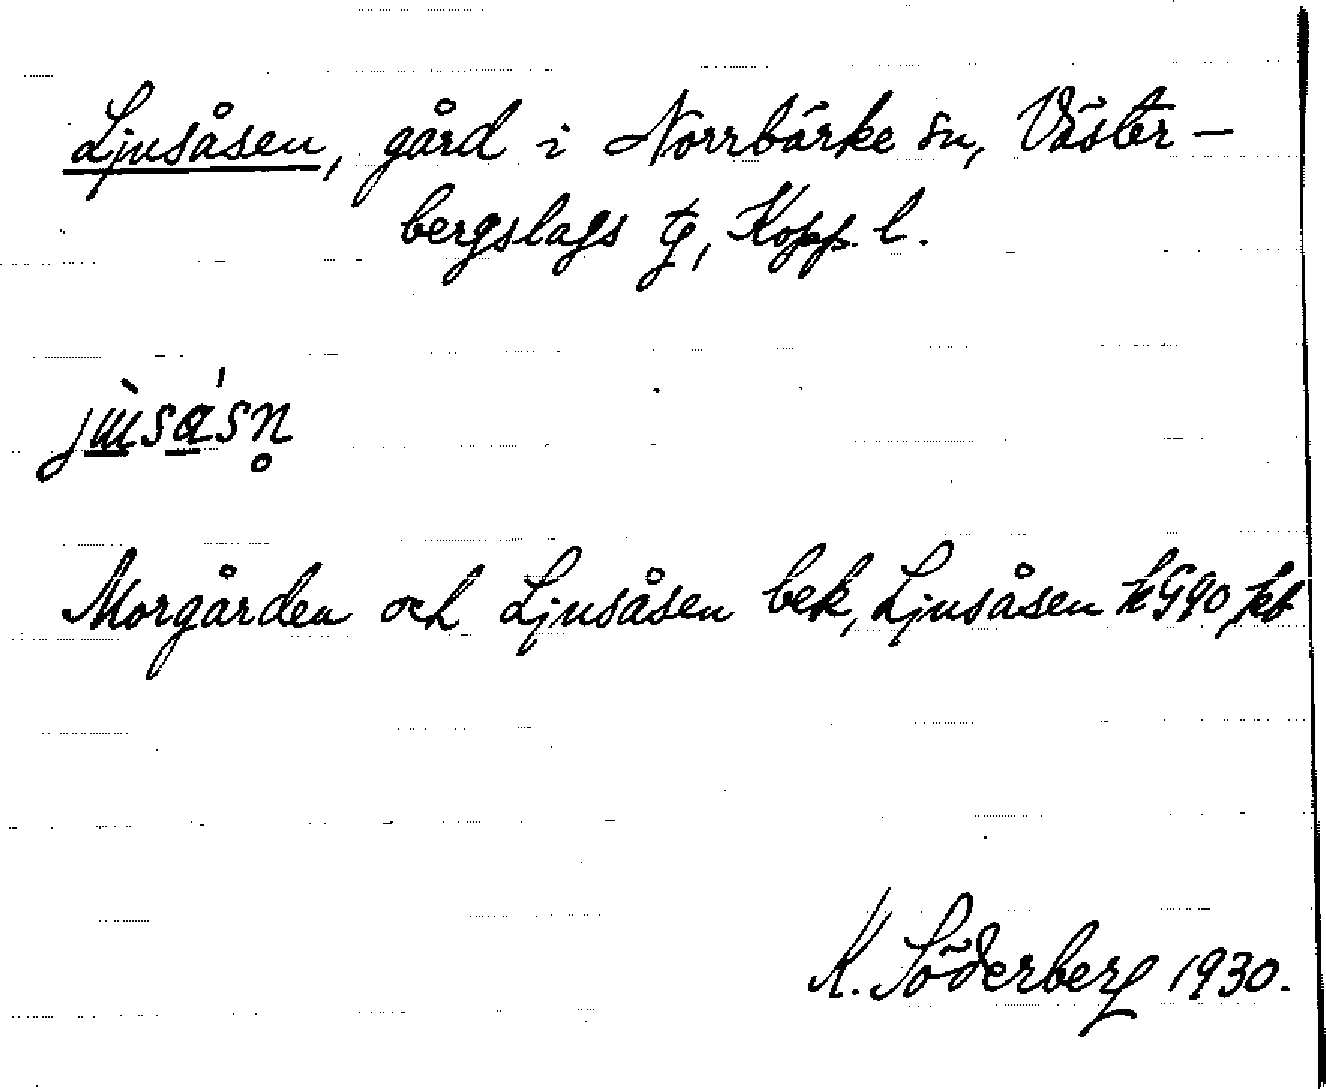 Ljusåsen, gård i Norrbärke sn, Väster-
bergslags tg, Kopp. l.
Morgården och Ljusåsen bek, Ljusåsen
K. Söderberg 1930.